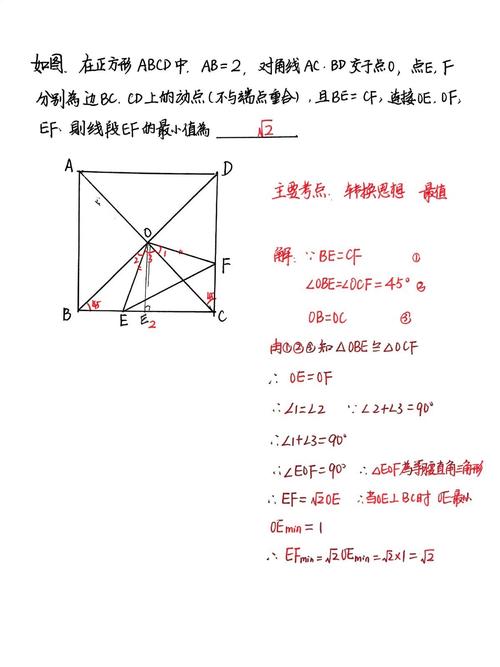 如图. 在正方形ABCD中. AB=2, 对角线AC·BD交于点O, 点E, F
分别為边BC. CD上的动点(不与端点重合), 且BE=CF, 连接OE. OF,
EF. 则线段EF的最小值為 √2
A
D
主要考点: 转换思想 最值
O
2 3 1
F
45
45
B
E
E₂
C
解: ∵BE=CF ①
∠OBE=∠OCF=45° ②
OB=OC ③
由①②③知△OBE≌△OCF
∴ OE=OF
∴∠1=∠2 ∵∠2+∠3=90°
∴∠1+∠3=90°
∴∠EOF=90° ∴△EOF為等腰直角三角形
∴EF=√2OE ∴当OE⊥BC时 OE最小
OEmin=1
∴ EFmin=√2OEmin=√2×1=√2